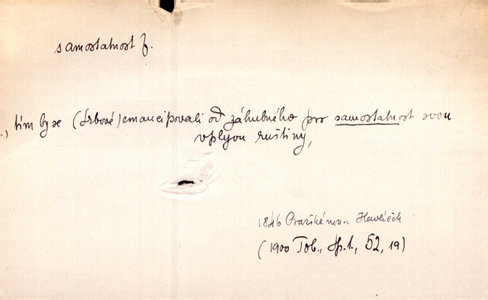 samostatnost f.
., tím by se (Srbové) emancipovali od záhubného pro samostatnost svou
vplyvu ruštiny,
1846 Pražské nov. Havlíček
(1900 Tob., Sp. 1, 52, 19)